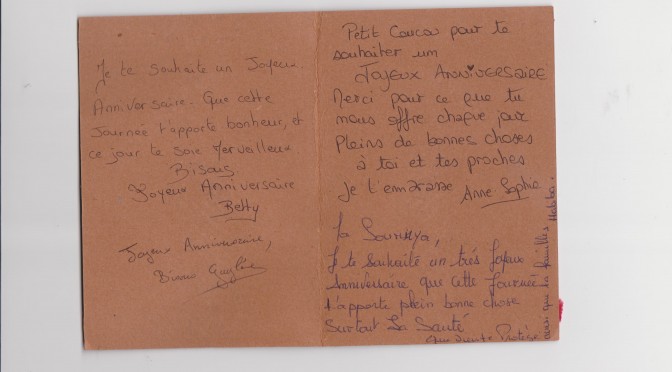 Je te souhaite un Joyeux
Anniversaire. Que cette
Journée t'apporte bonheur, et
ce jour te soie Merveilleux
Bisous
Joyeux Anniversaire
Betty
Joyeux Anniversaire,
Bisous
Petit Coucou pour te
souhaiter um
JOYEUX ANNIVERSAIRE
Merci pour ce que tu
nous offre chaque jour
Pleins de bonnes choses
à toi et tes proches
Je t'embrasse Anne Sophie
Je te souhaite un très Joyeux
Anniversaire que cette Journée
t'apporte plein bonne chose
Surtout La Santé
ainsi que ta famille Habiba.